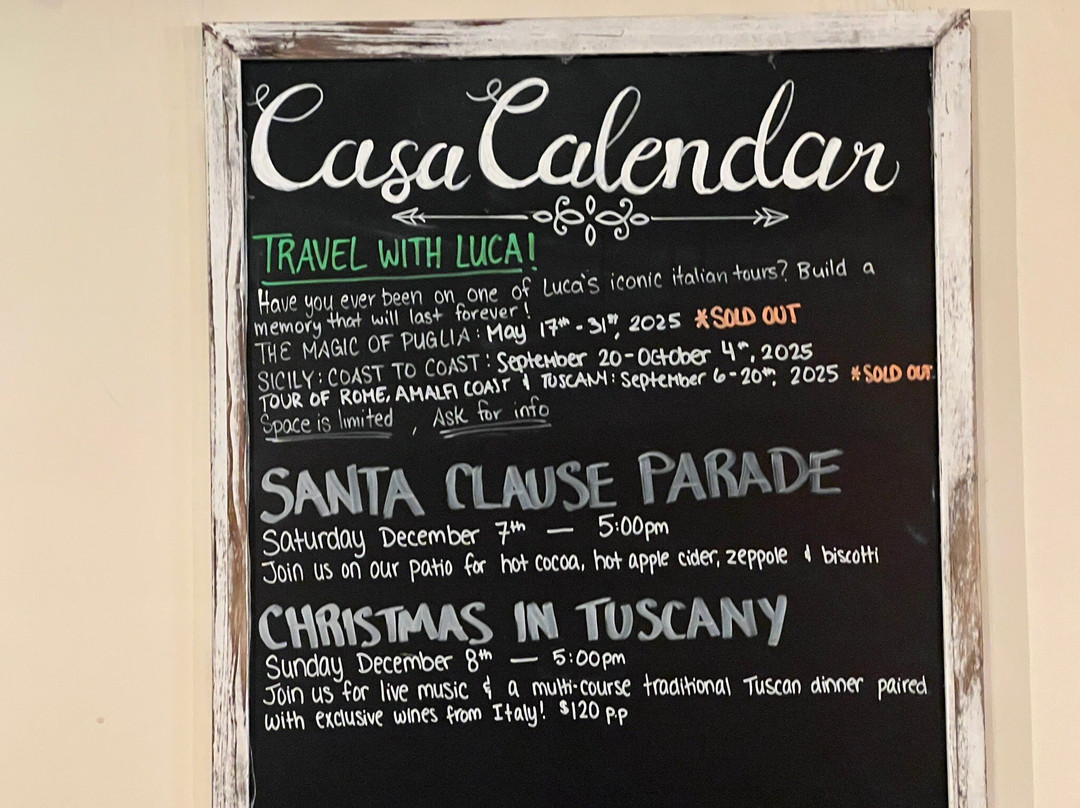 Casa Calendar
TRAVEL WITH LUCA!
Have you ever been on one of Luca's iconic italian tours? Build a
memory that will last forever!
THE MAGIC OF PUGLIA: May 17th - 31st, 2025 *SOLD OUT
SICILY: COAST TO COAST: September 20 - October 4th, 2025
TOUR OF ROME, AMALFI COAST & TUSCANY: September 6 - 20th, 2025 *SOLD OUT
Space is limited , Ask for info
SANTA CLAUSE PARADE
Saturday December 7th — 5:00pm
Join us on our patio for hot cocoa, hot apple cider, zeppole & biscotti
CHRISTMAS IN TUSCANY
Sunday December 8th — 5:00pm
Join us for live music & a multi-course traditional Tuscan dinner paired
with exclusive wines from Italy! $120 p.p